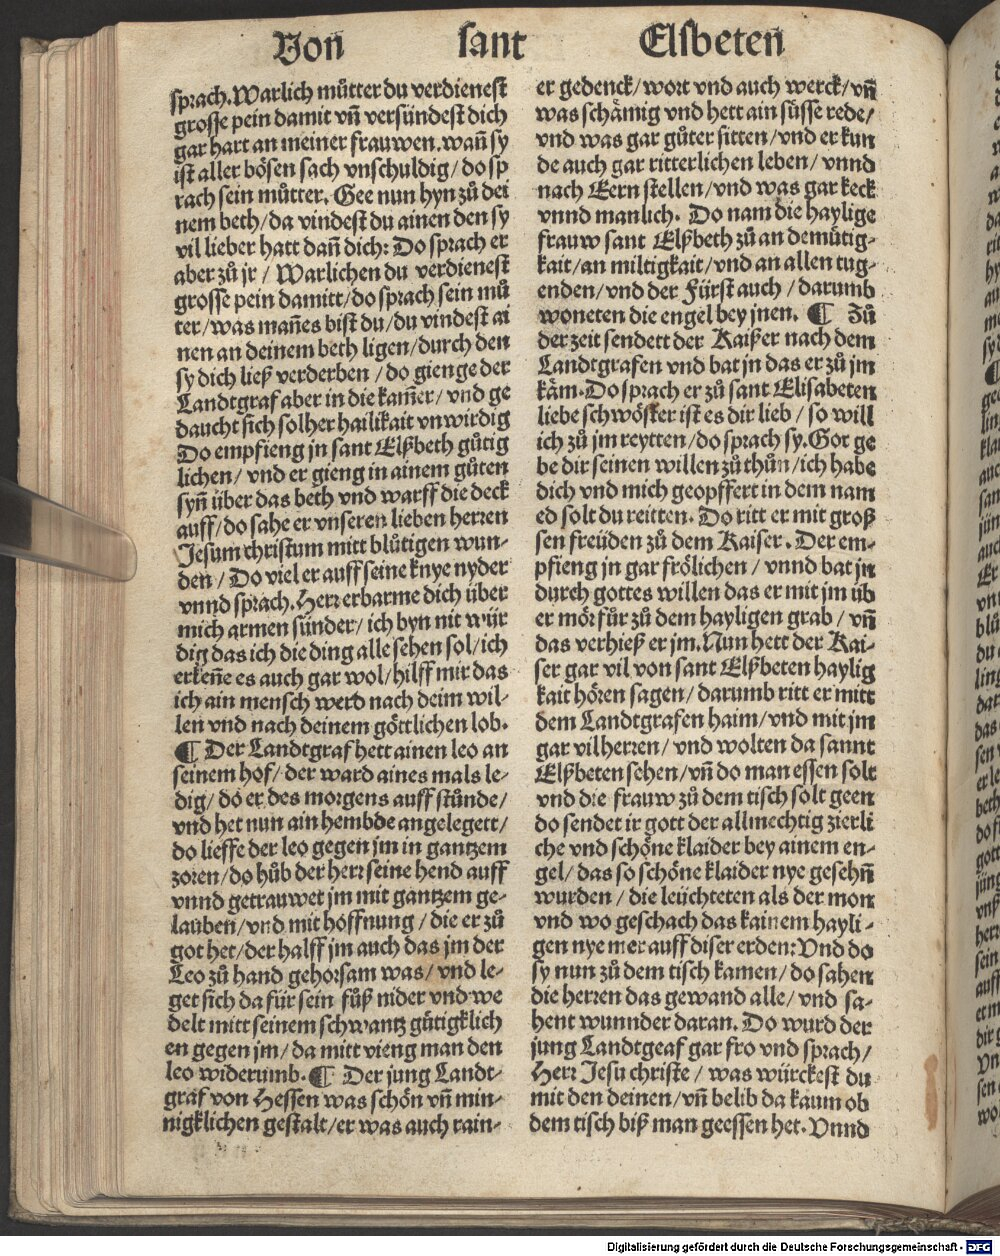 Von sant Elsbeten
sprach. Warlich můtter du verdienest
grosse pein damit vñ versündest dich
gar hart an meiner frauwen. wañ sy
ist aller bösen sach vnschuldig / do sp
rach sein můtter. Gee nun hyn zů dei
nem beth / da vindest du ainen den sy
vil lieber hatt dañ dich: Do sprach er
aber zů jr / Warlichen du verdienest
grosse pein damitt / do sprach sein mů
ter / was mañes bist du / du vindest ai
nen an deinem beth ligen / durch den
sy dich ließ verderben / do gienge der
Landtgraf aber in die kam̃er / vnd ge
daucht sich solher hailikait vnwirdig
Do empfieng jn sant Elßbeth gůtig
lichen / vnd er gieng in ainem gůten
syñ über das beth vnd warff die deck
auff / do sahe er vnseren lieben herren
Jesum christum mitt blůtigen wun-
den / Do viel er auff seine knye nyder
vnnd sprach. Herr erbarme dich über
mich armen sünder / ich byn nit wür
dig das ich die ding alle sehen sol / ich
erkeñe es auch gar wol / hilff mir das
ich ain mensch werd nach deim wil-
len vnd nach deinem göttlichen lob.
¶ Der Landtgraf hett ainen leo an
seinem hof / der ward aines mals le-
dig / do er des morgens auff stůnde /
vnd het nun ain hembde angelegett /
do lieffe der leo gegen jm in gantzem
zoren / do hůb der herr seine hend auff
vnnd getrauwet jm mit gantzem ge-
lauben / vnd mit hoffnung / die er zů
got het / der halff jm auch das jm der
Leo zů hand gehorsam was / vnd le-
get sich da für sein fůß nider vnd we
delt mitt seinem schwantz gůtigklich
en gegen jm / da mitt vieng man den
leo widerumb. ¶ Der jung Landt-
graf von Hessen was schön vñ min-
nigklichen gestalt / er was auch rain-
er gedenck / wort vnd auch werck / vñ
was schämig vnd hett ain süsse rede /
vnd was gar gůter sitten / vnd er kun
de auch gar ritterlichen leben / vnnd
nach Eern stellen / vnd was gar keck
vnnd manlich. Do nam die haylige
frauw sant Elßbeth zů an demütig-
kait / an miltigkait / vnd an allen tug-
enden / vnd der Fürst auch / darumb
woneten die engel bey jnen. ¶ Zů
der zeit sendett der Kaißer nach dem
Landtgrafen vnd bat jn das er zů jm
käm. Do sprach er zů sant Elisabeten
liebe schwöster ist es dir lieb / so will
ich zů jm reytten / do sprach sy. Got ge
be dir seinen willen zů thůn / ich habe
dich vnd mich geopffert in dem nam
ed solt du reitten. Do ritt er mit groß
sen freüden zů dem Kaiser. Der em-
pfieng jn gar frölichen / vnnd bat jn
durch gottes willen das er mit jm üb
er mör für zů dem hayligen grab / vñ
das verhieß er jm. Nun hett der Kai-
ser gar vil von sant Elßbeten haylig
kait hören sagen / darumb ritt er mitt
dem Landtgrafen haim / vnd mit jm
gar vil herren / vnd wolten da sannt
Elßbeten sehen / vñ do man essen solt
vnd die frauw zů dem tisch solt geen
do sendet ir gott der allmechtig zierli
che vnd schöne klaider bey ainem en-
gel / das so schöne klaider nye gesehñ
wurden / die leüchteten als der mon
vnd wo geschach das kainem hayli-
gen nye mer auff diser erden: Vnd do
sy nun zů dem tisch kamen / do sahen
die herren das gewand alle / vnd sa-
hent wunnder daran. Do wurd der
jung Landtgeaf gar fro vnd sprach /
Herr Jesu christe / was würckest du
mit den deinen / vñ belib da kaum ob
dem tisch biß man geessen het. Vnnd
Digitalisierung gefördert durch die Deutsche Forschungsgemeinschaft - DFG